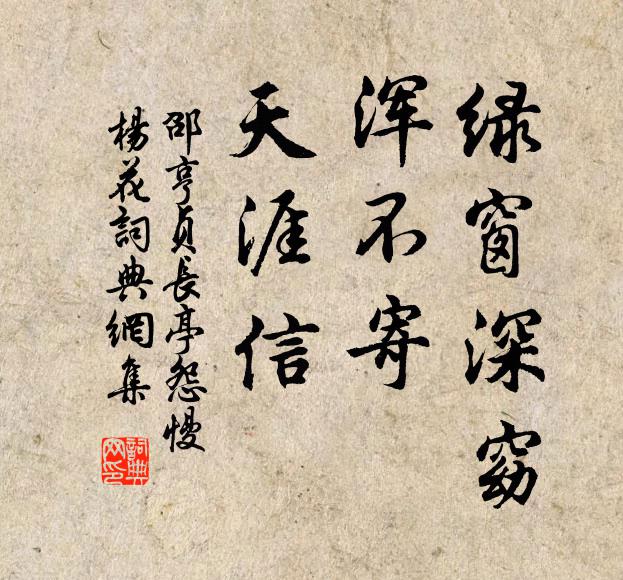 绿窗深窈
浑不寄
天涯信
邵亨貞長亭怨慢
楊花詞典網集
詞典
网印